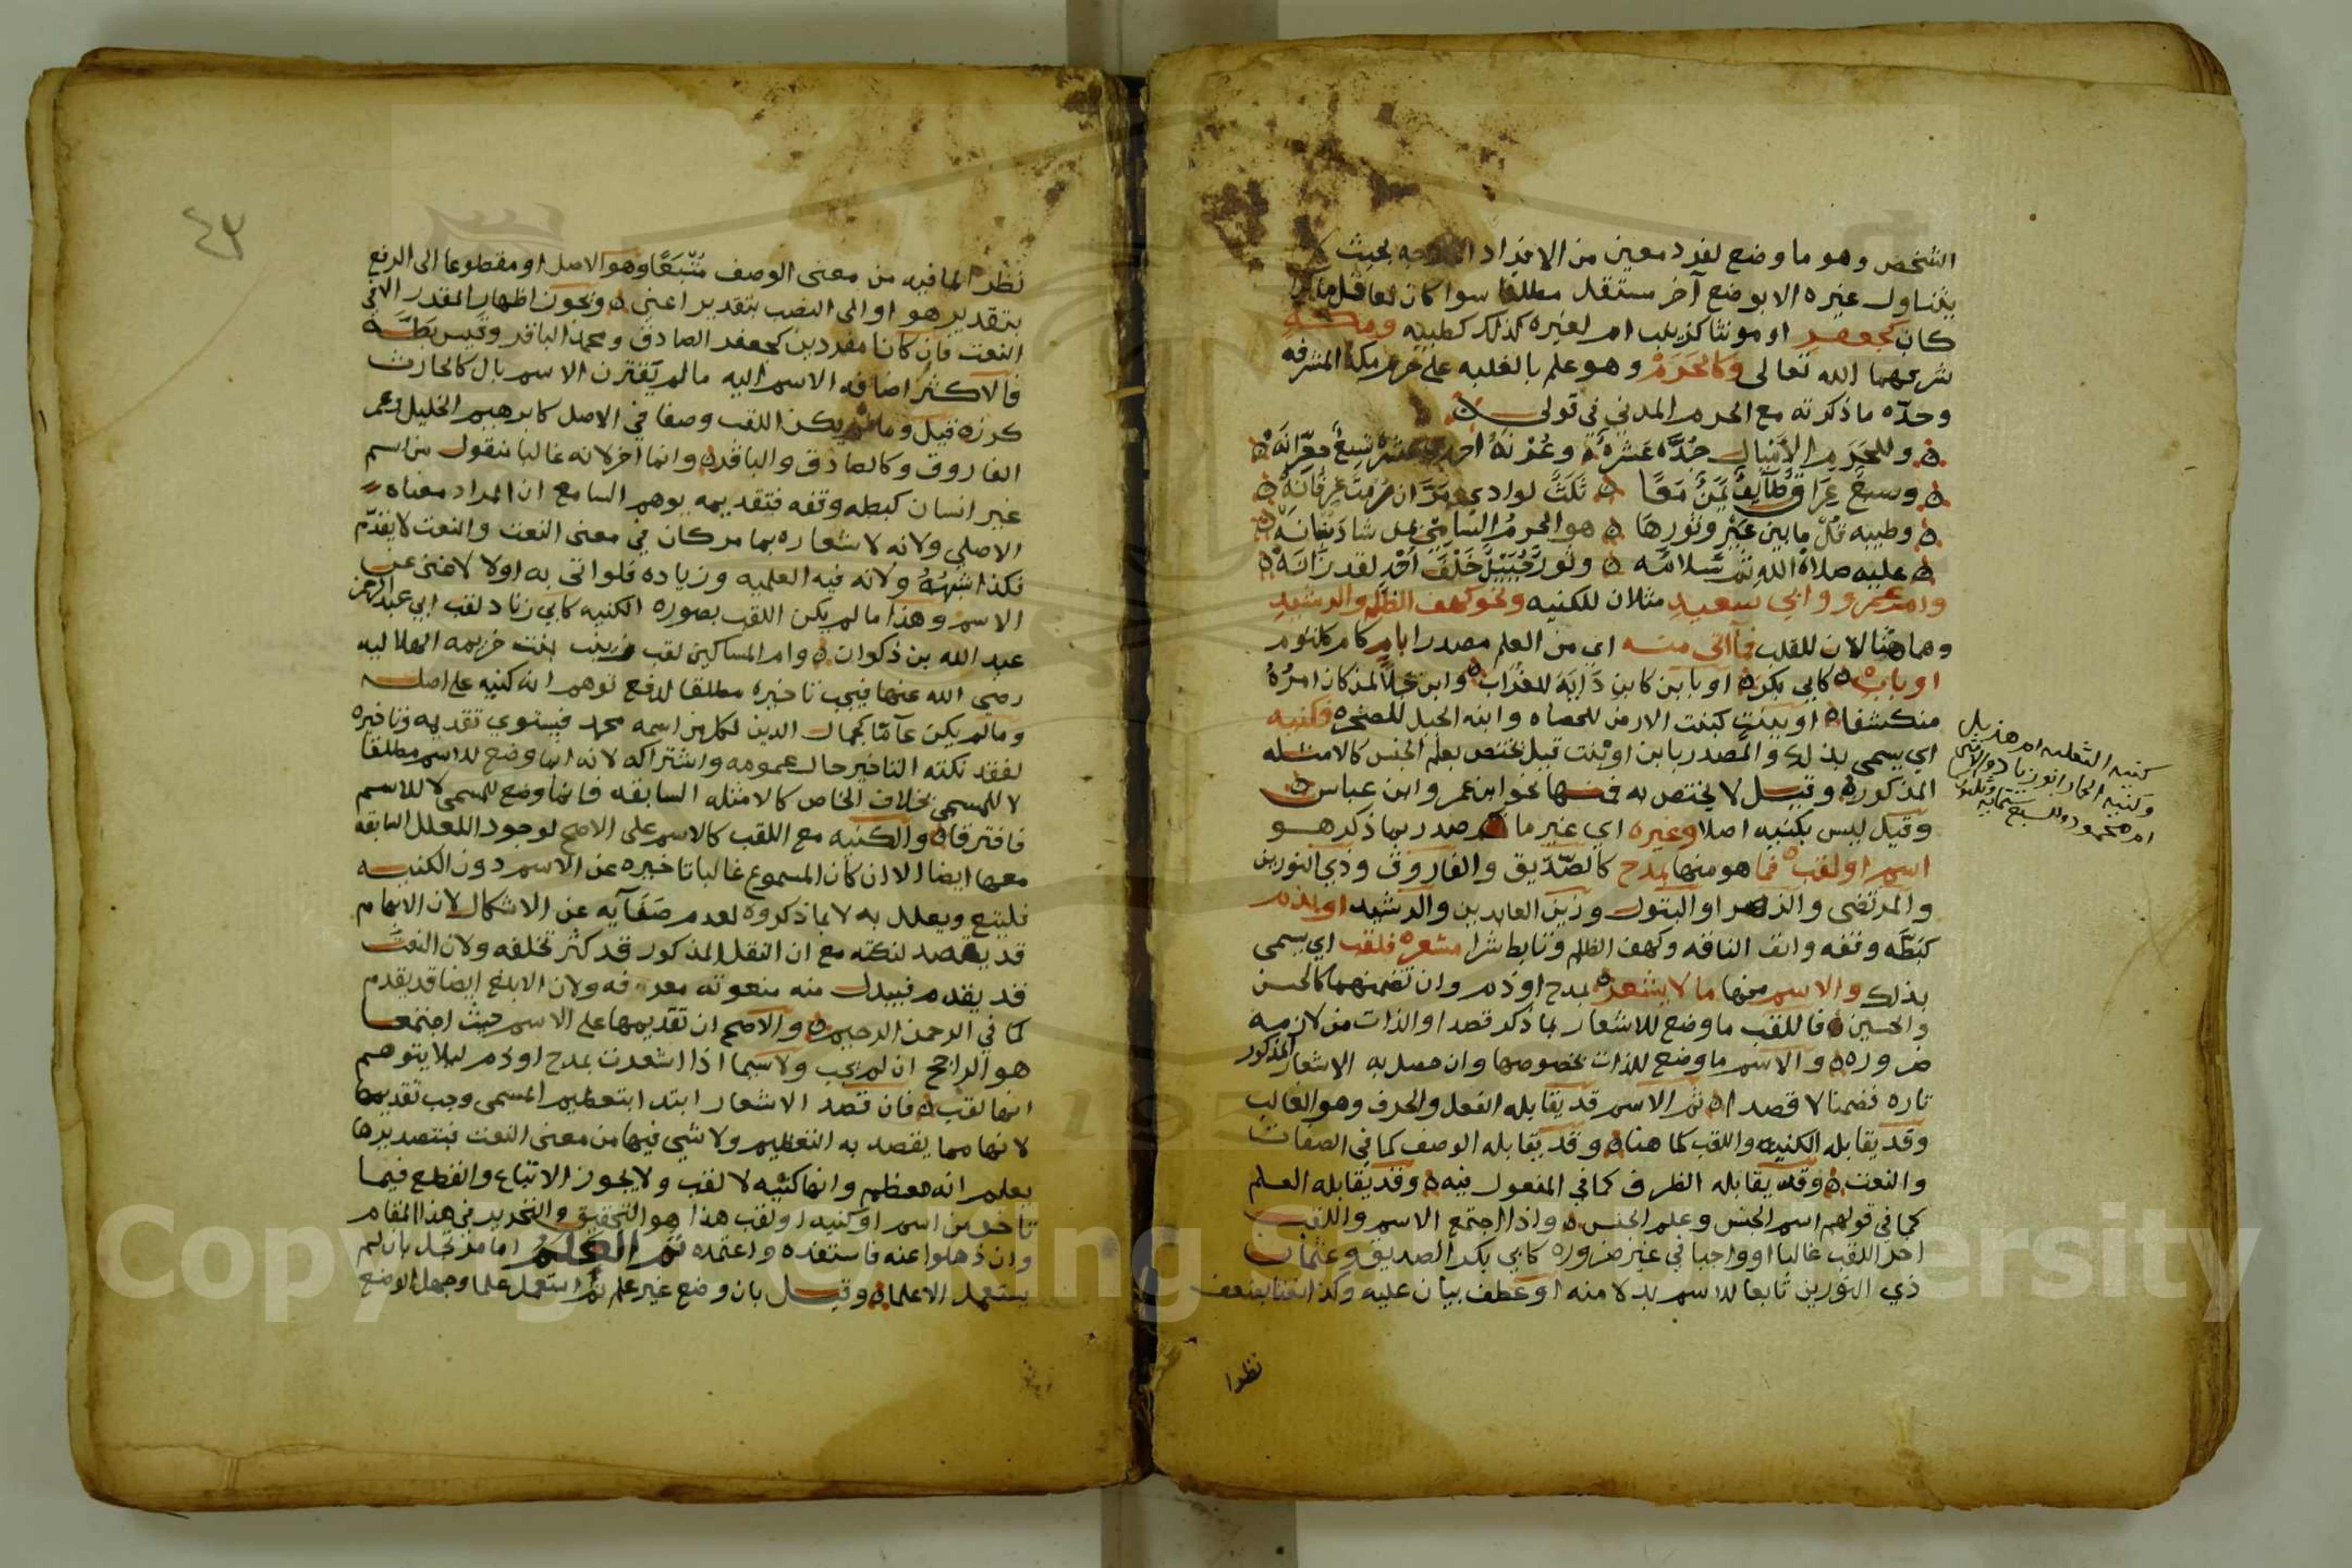 الشخص وهو ما وضع لفرد معين من الافراد بحيث لا
يتناول غيره الا بوضع آخر مستقل مطلقا سوا كان لعاقل
كان كجعفر او مونثا كزينب ام لغيره كذلك كطيبه ومكه
شرفهما الله تعالى وكالحرم وهو علم بالغلبه على حرم مكة المشرفه
وحدّه ما ذكرته مع الحرم المدني في قولي
وللحرم الأميال جدّه عشرة وعُرنة احدى عشر تسع جعرانة
وسبع عراق طائف يمن معا لوادي عرفانه
وطيبه قل ما بين عير وثورها هو الحرم السامي شاد بنيانه
عليه صلاة الله ثم سلامه وثور جبيل خلف احد لقد زانه
وام عمرو وابي سعيد مثلان للكنيه ونحو كهف الظلم والرشيد
وهما مثالان للقب فما اتى منه اي من العلم مصدرا بام كام كلثوم
او باب كابي بكر او بابن كابن دَايَة للغراب وابن جلا لمن كان امره
منكشفا او ببنت كبنت الارض للحصاه وابنه الجبل للصخره فكنيه
اي يسمى بذلك والمصدر بابن او بنت قيل تختص بعلم الجنس كالامثله
المذكوره وقيل لا يختص به فمنها نحو ابن عمر وابن عباس
وقيل ليس بكنيه اصلا وغيره اي غير ما صدر بما ذكر هو
اسم او لقب فما هو منها بمدح كالصدّيق والفاروق وذي النورين
والمرتضى والزهرا والبتول وزين العابدين والرشيد او بذم
كبطّه وقفه وانف الناقه وكهف الظلم وتابط شرا مشعره فلقب اي يسمى
بذلك والاسم منها ما لا يشعر بمدح او ذم وان تضمنهما كالحسن
والحسين فاللقب ما وضع للاشعار بما ذكر قصدا والذات من لازمه
ضروره والاسم ما وضع للذات بخصوصها وان حصل به الاشعار المذكور
تاره ضمنا لا قصدا ثم الاسم قد يقابله الفعل والحرف وهو الغالب
وقد يقابله الكنيه واللقب كما هنا وقد يقابله الوصف كما في الصفات
والنعت وقد يقابله الظرف كما في المفعول فيه وقد يقابله العلم
كما في قولهم اسم الجنس وعلم الجنس واذا اجتمع الاسم واللقب
اخر اللقب غالبا او واجبا في غير ضروره كابي بكر الصديق وعثمان
ذي النورين تابعا للاسم بدلا منه او عطف بيان عليه وكذا نعتا بضعف
نظرا
كنيه الثعلب ام هذيل
وكنيه الحمار ابو زياد
نظرا لما فيه من معنى الوصف مُتّبعًا وهو الاصل او مقطوعا الى الرفع
بتقدير هو او الى النصب بتقدير اعني ونحون اظهار المقدر الا في
النعت فان كانا مفردين كجعفر الصادق ومحمد الباقر وقيس بطّه
فالاكثر اضافه الاسم اليه ما لم يقترن الاسم بال كالحارث
كرز قيل وما لم يكن اللقب وصفا في الاصل كابرهيم الخليل وعمر
الفاروق وكالصادق والباقر وانما اخر لانه غالبا منقول من اسم
غير انسان كبطه وقفه فتقديمه يوهم السامع ان المراد معناه
الاصلي ولانه لاشعاره بما مر كان في معنى النعت والنعت لا يقدّم
فكذا شبهُهُ ولانه فيه العلميه وزياده فلو اتى به اولا لاغنى عن
الاسم وهذا ما لم يكن اللقب بصوره الكنيه كابي زناد لقب ابي عبد الرحمن
عبد الله بن ذكوان وام المساكين لقب زينب بنت خزيمه الهلاليه
رضي الله عنها فيجب تاخيره مطلقا لدفع توهم انه كنيه على اصله
وما لم يكن عامّا كجمال الدين لكل من اسمه محمد فيستوي تقديمه وتاخيره
لفقد نكته التاخير حال عمومه واشتراكه لانه انما وضع للاسم مطلقا
لا للمسمى بخلاف الخاص كالامثله السابقه فانما وضع للمسمى لا للاسم
فافترقا والكنيه مع اللقب كالاسم على الاصح لوجود العلل السابقه
معها ايضا الا ان كان المسموع غالبا تاخيره عن الاسم دون الكنيه
فليتبع ويعلل به لا بما ذكروه لعدم صَفَآيه عن الاشكال لان الابهام
قد يقصد لنكته مع ان النقل المذكور قد كثر تخلفه ولان النعت
قد يقدم فيبدل منه منعوته معرفه ولان الابلغ ايضا قد يقدم
كما في الرحمن الرحيم والاصح ان تقديمها على الاسم حيث اجتمعا
هو الراجح ان لم يجب ولا سيما اذا اشعرت بمدح او ذم ليلا يتوهم
انها لقب فان قصد الاشعار ابتدا بتعظيم المسمى وجب تقديمها
لانها مما يقصد به التعظيم ولا شي فيها من معنى النعت فبتصديرها
يعلم انه معظم وانها كنيه لا لقب ولا يجوز الاتباع والقطع فيما
تاخر من اسم او كنيه او لقب هذا هو التحقيق والتحرير في هذا المقام
وان ذهلوا عنه فاستفده واعتمده ثم العلم اما مرتجل بان لم
يستعمل الا علما وقيل بان وضع غير علم ثم استعمل علما وجهل الوضع
٤٣
Copy King Saud University
195